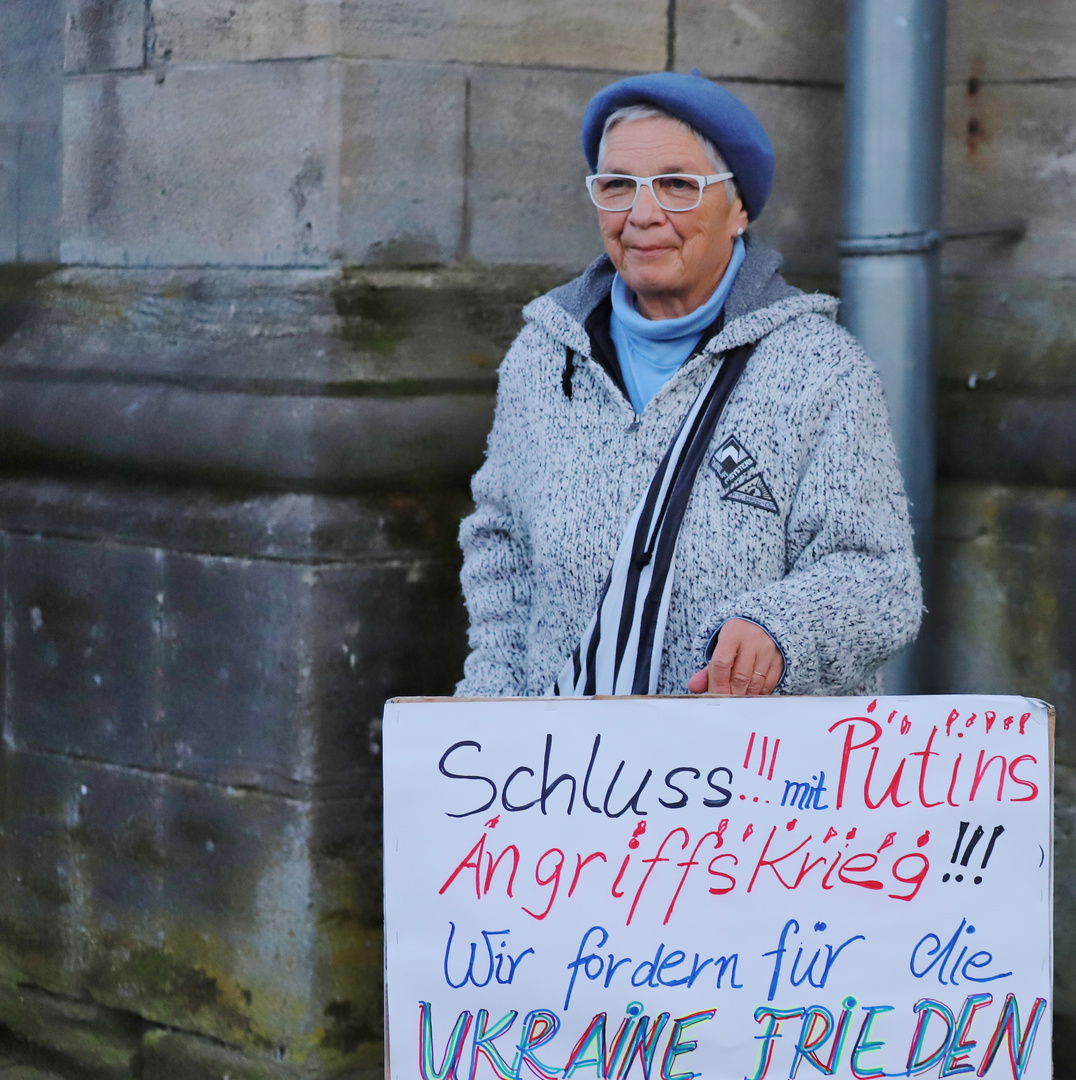 Schluss!!! mit Putins
Angriffskrieg!!!
Wir fordern für die
UKRAINE FRIEDEN